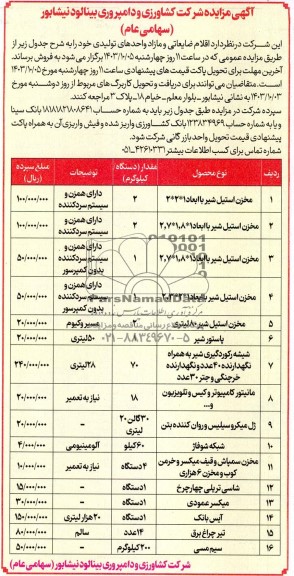 آگهی مزایده شرکت کشاورزی و دامپروری بینالود نیشابور
(سهامی عام)
این شرکت در نظر دارد اقلام ضایعاتی و مازاد واحدهای تولیدی خود را به شرح جدول زیر از
طریق مزایده عمومی که در ساعت ۱۱ روز چهارشنبه ۱۴۰۳/۱۰/۰۵ برگزار می شود به فروش برساند.
آخرین مهلت برای تحویل پاکت قیمت های پیشنهادی ساعت ۱۱ روز چهارشنبه مورخ ۱۴۰۳/۱۰/۰۵
است. متقاضیان می توانند برای دریافت و تحویل کاربرگ های مربوط از روز دوشنبه مورخ
۱۴۰۳/۱۰/۰۳ به نشانی نیشابور - بلوار معلم - خیام ۱۸ - پلاک ۳ مراجعه کنند.
سپرده شرکت در مزایده طبق جدول زیر باید به شماره حساب ۱۸۱۸۸۱۲۱۸۰۸۶۴۱ بانک سینا
و یا به شماره حساب ۱۲۳۸۳۴۹۶۹ بانک کشاورزی واریز شده و فیش واریزی آن به همراه پاکت
پیشنهادی قیمت تحویل واحد بازرگانی شرکت شود.
شماره تماس برای کسب اطلاعات بیشتر ۴۲۶۱۳۳۱-۰۵۱
ردیف نوع محصول مقدار (دستگاه کیلوگرم) توضیحات مبلغ سپرده (ریال)
۱ مخزن استیل شیر با ابعاد ۱*۲*۲ ۲ دارای همزن و سیستم سردکننده ۱۰۰/۰۰۰/۰۰۰
۲ مخزن استیل شیر با ابعاد ۱*۱,۸۹*۲,۷ ۲ دارای همزن و سیستم سردکننده ۱۰۰/۰۰۰/۰۰۰
۳ مخزن استیل شیر با ابعاد ۱*۱,۸۹*۲,۷ ۱ دارای همزن و سیستم سردکننده بدون کمپرسور ۵۰/۰۰۰/۰۰۰
۴ مخزن استیل شیر با ابعاد دارای همزن و سیستم سردکننده بدون کمپرسور ۵۰/۰۰۰/۰۰۰
۵ مخزن استیل شیر ۸۰ لیتری ۲ مسیر وکیوم ۲۰/۰۰۰/۰۰۰
۶ پاستور شیر ۵۰ لیتری ۲۰/۰۰۰/۰۰۰
۷ شیشه رکوردگیری شیر به همراه نگهدارنده ۴۰ عدد و نگهدارنده خرچنگی و جتر ۳۰ عدد ۷۰ ۲۸ لیتری ۲۴۰/۰۰۰/۰۰۰
۸ مانیتور کامپیوتر و کیس و تلویزیون و... ۱۸ نیاز به تعمیر ۲۰/۰۰۰/۰۰۰
۹ ژل میکروسیلیس و روان کننده بتن ۳۰ گالن ۲۰ لیتری - ۲۰/۰۰۰/۰۰۰
۱۰ شبکه شوفاژ ۶۰ کیلو آلومینیومی ۴/۰۰۰/۰۰۰
۱۱ مخزن سمپاش و قیف میکسر و خرمن کوب و مخزن ۶ هزاری ۴ دستگاه نیاز به تعمیر ۱۰/۰۰۰/۰۰۰
۱۲ شاسی تریلی چهارچرخ ۱ دستگاه - ۱۵/۰۰۰/۰۰۰
۱۳ میکسر عمودی ۱ دستگاه - ۳۰/۰۰۰/۰۰۰
۱۴ آیس بانک ۱ دستگاه ۲۰ هزار لیتری ۱۵۰/۰۰۰/۰۰۰
۱۵ تیر چراغ برق ۱۴ عدد سالم ۸۰/۰۰۰/۰۰۰
۱۶ سیم مسی ۲۰۰ کیلوگرم - ۵۰/۰۰۰/۰۰۰
شرکت کشاورزی و دامپروری بینالود نیشابور (سهامی عام)
ParsNamadData
۰۲۱-۸۸۳۴۹۶۷۰-۵